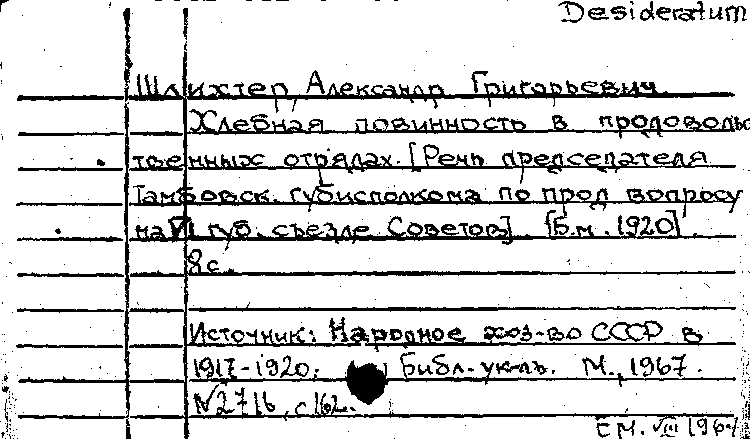 Desideratum
Шлихтер, Александр Григорьевич.
Хлебная повинность в продоволь
твенных отрядах. [Речь председателя
Тамбовск. губисполкома по прод вопросу
на VI губ. съезде Советов]. [Б.м. 1920].
8 с.
Источник: Народное хоз-во СССР в
1917-1920. Библ. ук-ль. М., 1967.
№ 2716, с 162.
Е М. VIII 1967